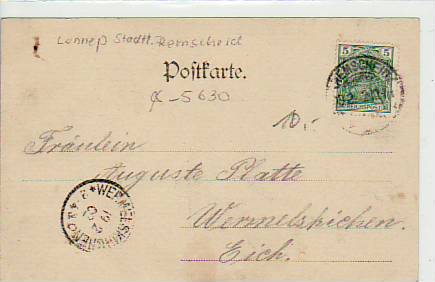 Lennep Stadtt. Remscheid
Postkarte.
5 5
REMSCHEID
REICHSPOST
α-5630
10,-
Fräulein
Auguste Platte
Wermelskirchen.
Eich.
* WERMELSKIRCHEN *